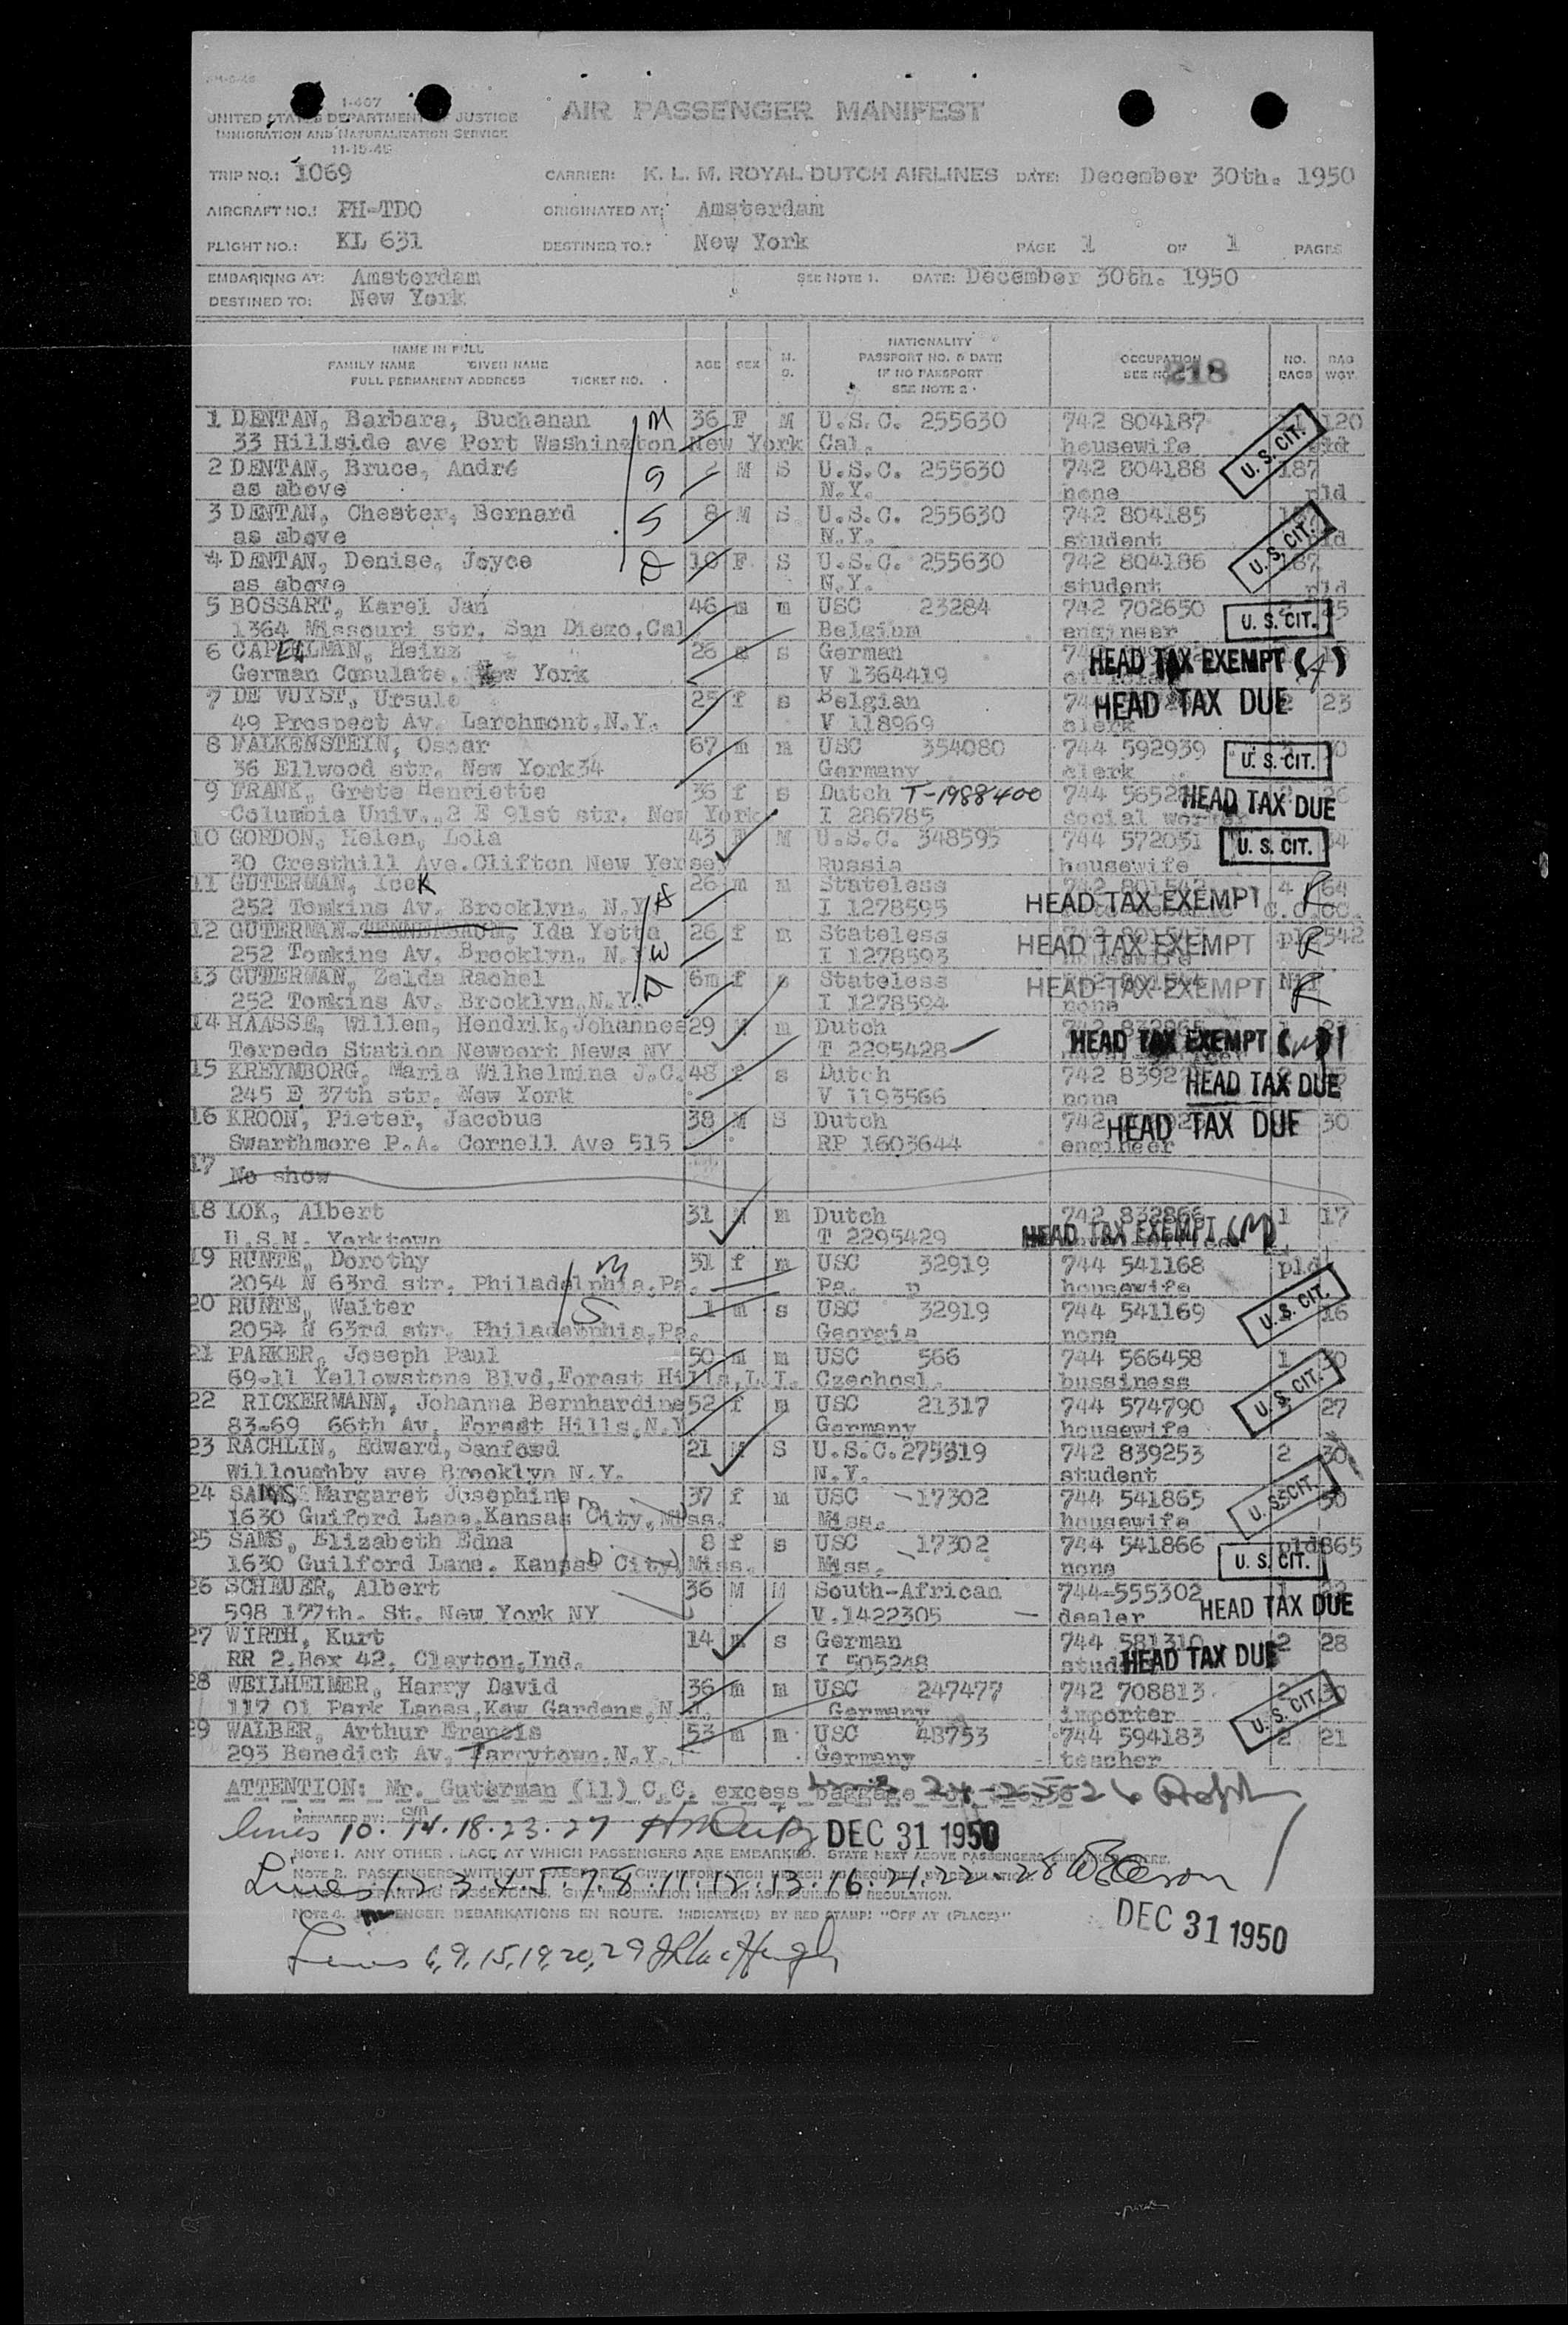 1-467
UNITED STATES DEPARTMENT OF JUSTICE
IMMIGRATION AND NATURALIZATION SERVICE
11-15-45
AIR PASSENGER MANIFEST
TRIP NO.: 1069 CARRIER: K. L. M. ROYAL DUTCH AIRLINES DATE: December 30th. 1950
AIRCRAFT NO.: PH-TDO ORIGINATED AT: Amsterdam
FLIGHT NO.: KL 631 DESTINED TO: New York PAGE 1 OF 1 PAGES
EMBARKING AT: Amsterdam SEE NOTE 1. DATE: December 30th. 1950
DESTINED TO: New York
NAME IN FULL
FAMILY NAME GIVEN NAME
FULL PERMANENT ADDRESS TICKET NO.
AGE SEX M. S.
NATIONALITY
PASSPORT NO. & DATE
IF NO PASSPORT
SEE NOTE 2
OCCUPATION
SEE NO 218
NO. BAGS
BAG WGT.
1 DENTAN, Barbara, Buchanan M 36 F M U.S.C. 255630 742 804187 120
33 Hillside ave Port Washington New York Cal. housewife U.S. CIT.
2 DENTAN, Bruce, André S M S U.S.C. 255630 742 804188 187
as above N.Y. none pld
3 DENTAN, Chester, Bernard S 8 M S U.S.C. 255630 742 804185
as above N.Y. student U.S. CIT.
4 DENTAN, Denise, Joyce D 10 F S U.S.C. 255630 742 804186 187
as above N.Y. student pld
5 BOSSART, Karel Jan 46 m m USC 23284 742 702650
1364 Missouri str. San Diego,Cal Belgium engineer U.S. CIT.
6 CAPELLMAN, Heinz 26 s German
German Conulate. New York V 1364419 HEAD TAX EXEMPT
7 DE VUYST, Ursule 25 f s Belgian 2 23
49 Prospect Av. Larchmont,N.Y. V 118969 clerk HEAD TAX DUE
8 FALKENSTEIN, Oscar 67 m m USC 354080 744 592939
36 Ellwood str. New York 34 Germany clerk U.S. CIT.
9 FRANK, Grete Henriette 36 f s Dutch T-1988400 744 26
Columbia Univ.,2 E 91st str. New York I 286785 social worker HEAD TAX DUE
10 GORDON, Helen, Lola 43 F M U.S.C. 348595 744 572051
30 Cresthill Ave.Clifton New Yersey Russia housewife U.S. CIT.
11 GUTERMAN, Icek 26 m m Stateless 4 64
252 Tomkins Av. Brooklyn. N.Y. I 1278595 HEAD TAX EXEMPT R
12 GUTERMAN-TENNENBAUM, Ida Yetta 26 f m Stateless
252 Tomkins Av. Brooklyn. N.Y. W I 1278593 HEAD TAX EXEMPT R
13 GUTERMAN, Zelda Rachel 6m f s Stateless
252 Tomkins Av. Brooklyn.N.Y. D I 1278594 none HEAD TAX EXEMPT R
14 HAASSE, Willem, Hendrik,Johannes 29 M m Dutch
Torpedo Station Newport News NY T 2295428 HEAD TAX EXEMPT (M)
15 KREYMBORG, Maria Wilhelmina J.C. 48 f s Dutch
245 E 37th str. New York V 1193566 none HEAD TAX DUE
16 KROON, Pieter, Jacobus 38 M S Dutch 30
Swarthmore P.A. Cornell Ave 515 RP 1603644 engineer HEAD TAX DUE
17 No show
18 LOK, Albert 31 M m Dutch 742 832866 1 17
U.S.N. Yorktown T 2295429 HEAD TAX EXEMPT (M)
19 RUNTE, Dorothy M 31 f m USC 32919 744 541168 pld
2054 N 63rd str. Philadelphia,Pa. Pa. housewife
20 RUNTE, Walter S 1 m s USC 32919 744 541169 16
2054 N 63rd str. Philadelphia,Pa. Georgia none U.S. CIT.
21 PARKER, Joseph Paul 50 m m USC 566 744 566458 1 30
69-11 Yellowstone Blvd,Forest Hills,L.I. Czechosl. bussiness
22 RICKERMANN, Johanna Bernhardine 52 f m USC 21317 744 574790 27
83-69 66th Av. Forest Hills,N.Y Germany housewife U.S. CIT.
23 RACHLIN, Edward,Sanford 21 M S U.S.C.275319 742 839253 2 30
Willoughby ave Brooklyn N.Y. N.Y. student
24 SAMS Margaret Josephine 37 f m USC 17302 744 541865 50
1630 Guiford Lane.Kansas City,Miss. Miss. housewife U.S. CIT.
25 SAMS, Elizabeth Edna 8 f s USC 17302 744 541866 pld865
1630 Guilford Lane. Kansas City,Miss. Miss. none U.S. CIT.
26 SCHEUER, Albert 36 M M South-African 744-555302
598 177th. St. New York NY V.1422305 dealer HEAD TAX DUE
27 WIRTH, Kurt 14 m s German 744 581310 2 28
RR 2,Box 42. Clayton,Ind. I 505248 HEAD TAX DUE
28 WEILHEIMER, Harry David 36 m m USC 247477 742 708813 2 30
117 01 Park Lanes,Kew Gardens,N.Y. Germany importer U.S. CIT.
29 WALBER, Arthur Francis 53 m m USC 48753 744 594183 2 21
293 Benedict Av. Tarrytown.N.Y. Germany teacher
ATTENTION: Mr. Guterman (11) C.C. excess baggage
PREPARED BY:
lines 10. 14. 18. 23. 27 DEC 31 1950
NOTE 1. ANY OTHER PLACE AT WHICH PASSENGERS ARE EMBARKED. STATE NEXT ABOVE PASSENGERS EMBARKING THERE.
NOTE 2. PASSENGERS WITHOUT PASSPORT, GIVE INFORMATION HEREON AS REQUIRED BY REGULATION.
Lines 1. 2. 3. 4. 5. 7. 8. 11. 12. 13. 16. 21. 22. 28
DEPARTING PASSENGERS. GIVE INFORMATION HEREON AS REQUIRED BY REGULATION.
NOTE 4. PASSENGER DEBARKATIONS EN ROUTE. INDICATE(D) BY RED STAMP: "OFF AT (PLACE)"
DEC 31 1950
Lines 6, 9, 15, 19, 20, 29